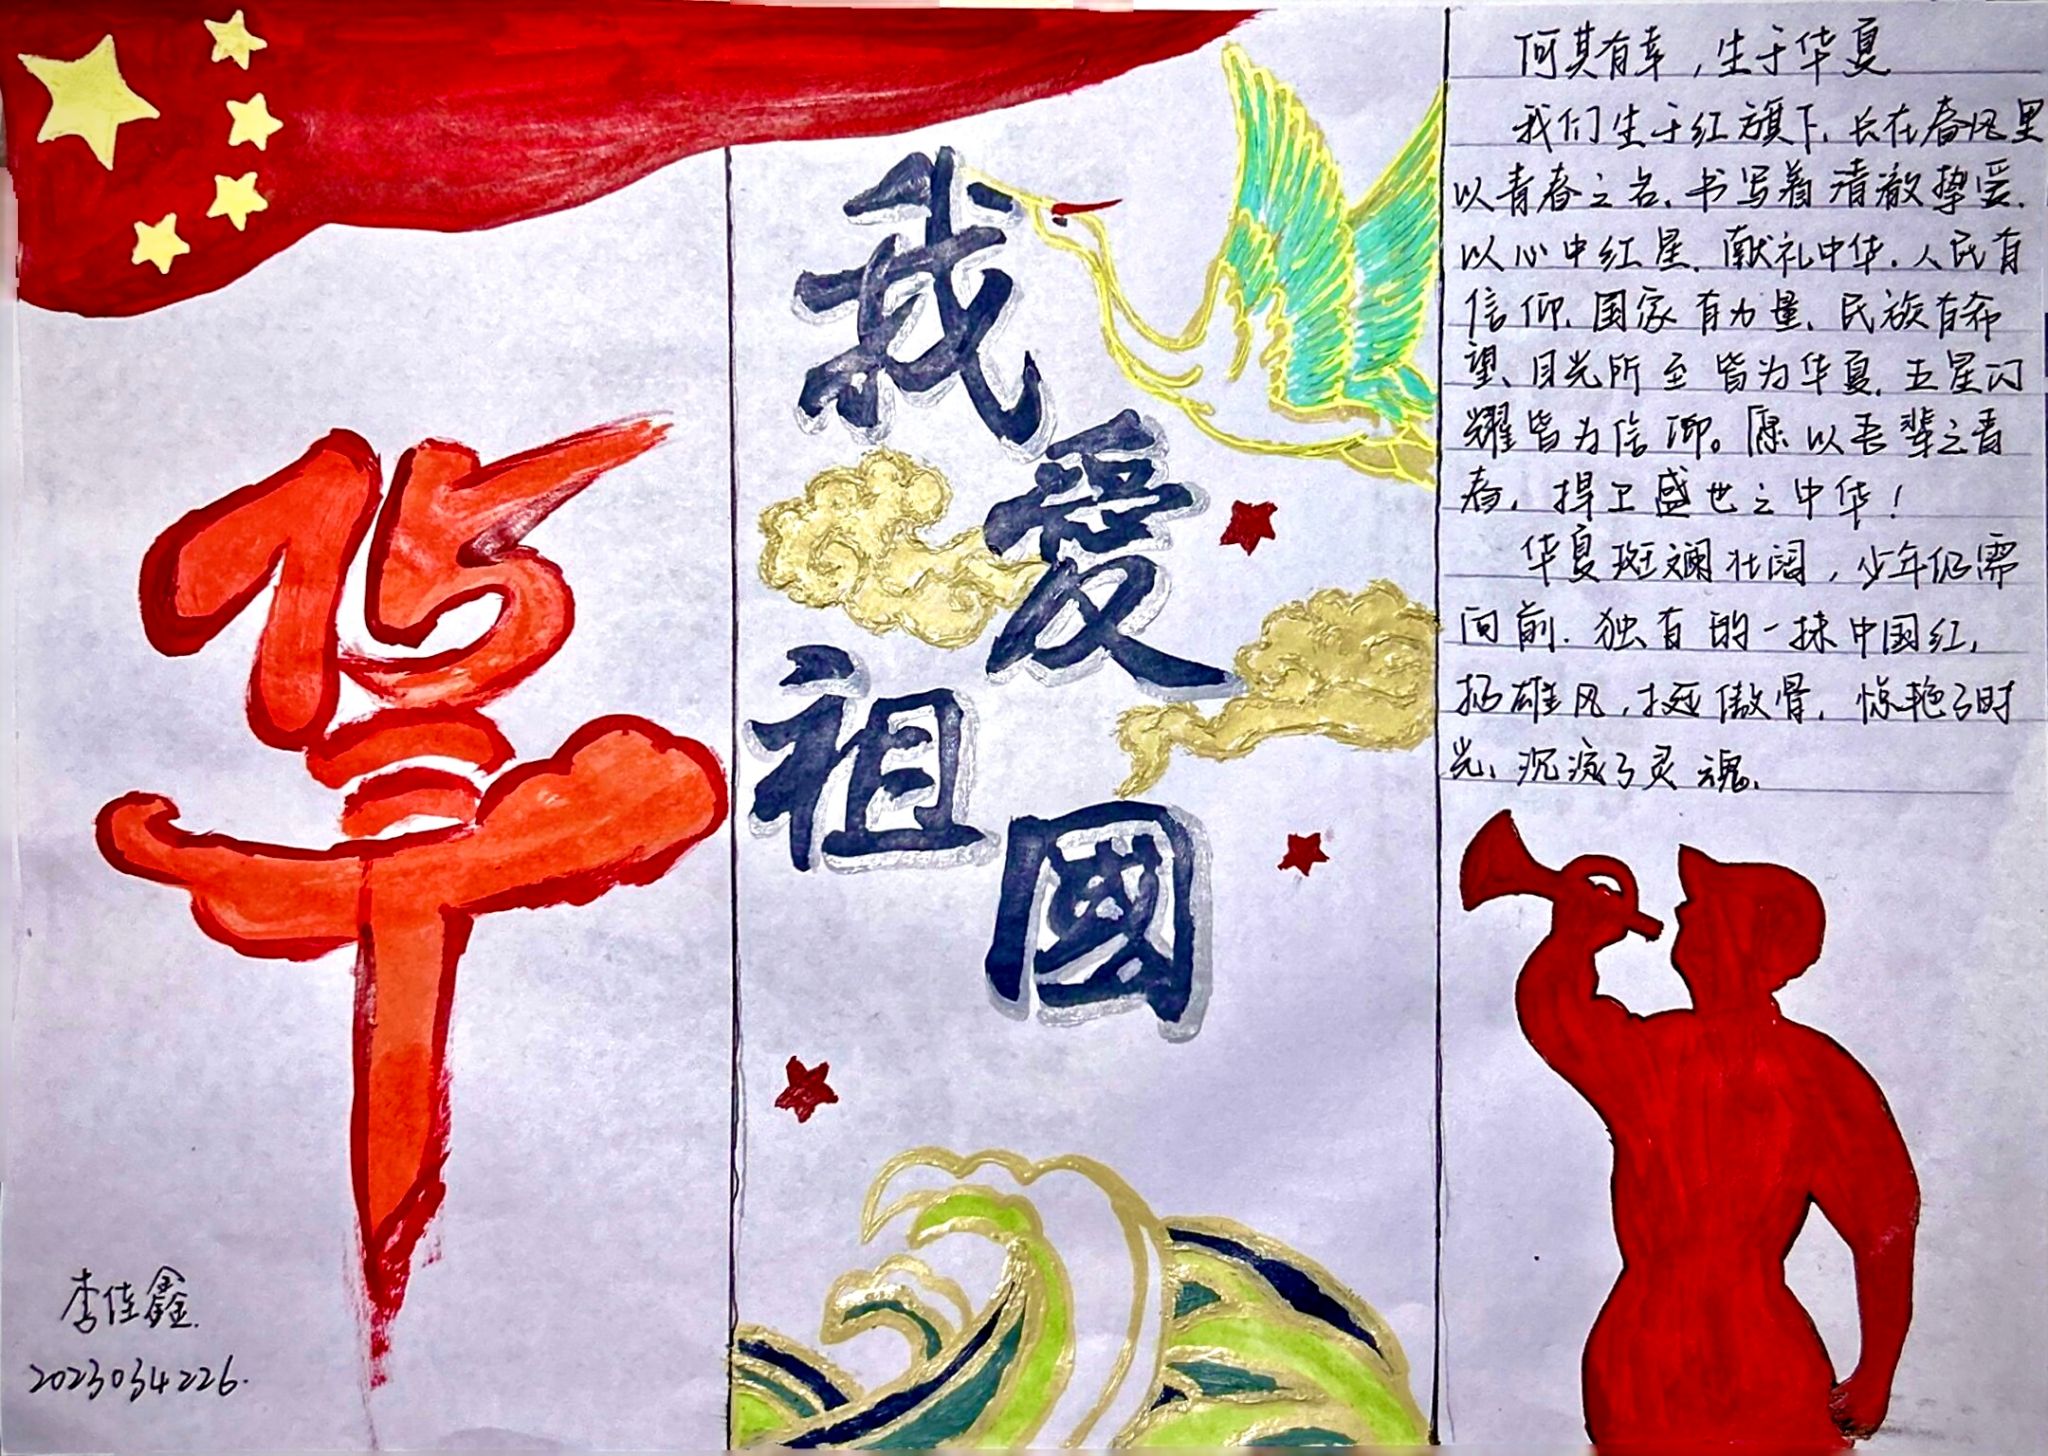 75
华
李佳鑫
2023034226.
我
愛
祖
國
何其有幸，生于华夏
我们生于红旗下、长在春风里
以青春之名、书写着清澈挚爱.
以心中红星、献礼中华.人民有
信仰、国家有力量、民族有希
望、目光所至皆为华夏.五星闪
耀皆为信仰。愿以吾辈之青
春,捍卫盛世之中华!
华夏斑斓壮阔,少年仍需
向前.独有的一抹中国红,
扬雄风,挺傲骨,惊艳了时
光、沉淀了灵魂.